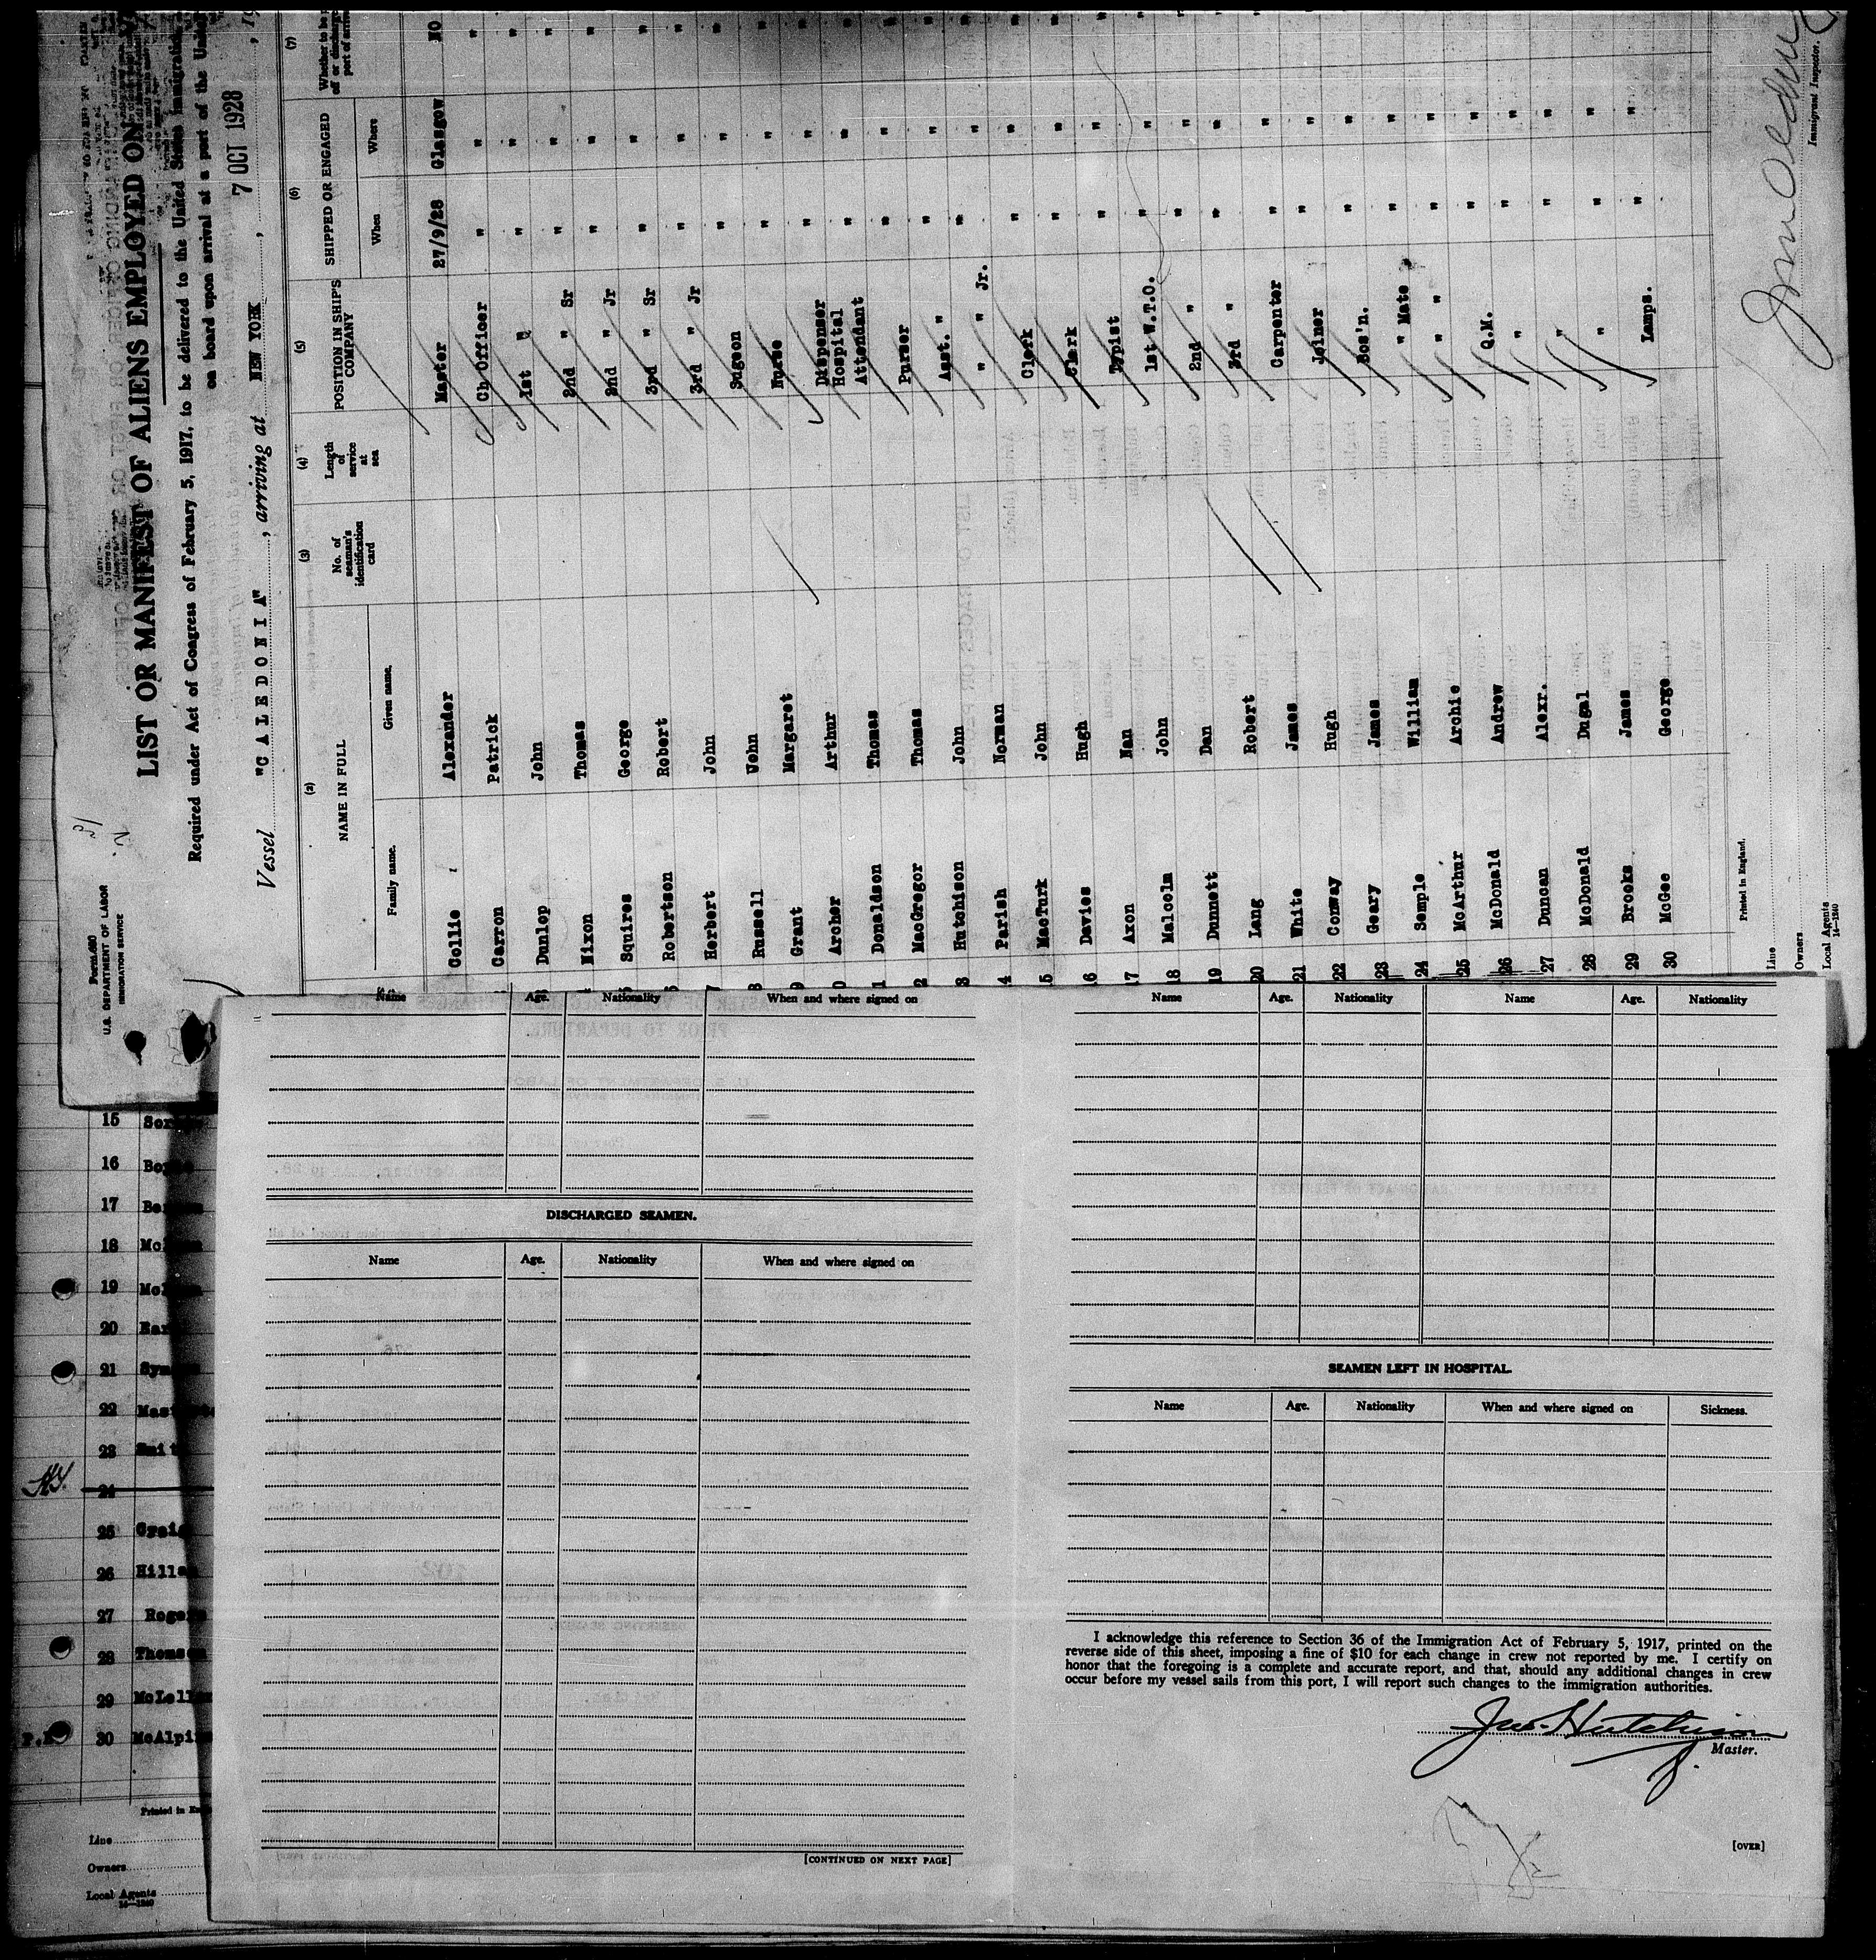 Form 680
U.S. DEPARTMENT OF LABOR
IMMIGRATION SERVICE
LIST OR MANIFEST OF ALIENS EMPLOYED ON
Required under Act of Congress of February 5, 1917, to be delivered to the United States Immigration
on board upon arrival at a port of the United
Vessel "CALEDONIA", arriving at NEW YORK, 7 OCT 1928, 19
(2) (3) (4) (5) (6) (7)
NAME IN FULL No. of seaman's identification card Length of service at sea POSITION IN SHIP'S COMPANY SHIPPED OR ENGAGED Whether to be
of or discharge
port of arrival
Family name. Given name. When Where
Collie Alexander Master 27/9/28 Glasgow NO
Carron Patrick Ch Officer " " "
Dunlop John 1st " " " "
Nixon Thomas 2nd " Sr " " "
Squires George 2nd " Jr " " "
Robertson Robert 3rd " Sr " " "
7 Herbert John 3rd " Jr " " "
8 Russell John Sugeon " " "
9 Grant Margaret Nurse " " "
0 Archer Arthur Dispenser " " "
1 Donaldson Thomas Hospital Attendant " " "
2 MacGregor Thomas Purser " " "
3 Hutchison John Asst. " " " "
4 Parish Norman " " Jr. " " "
5 MacTurk John Clerk " " "
16 Davies Hugh Clerk " " "
17 Axon Nan Typist " " "
18 Malcolm John 1st W.T.O. " " "
19 Dunnett Dan 2nd " " " "
20 Lang Robert 3rd " " " "
21 White James Carpenter " " "
22 Conway Hugh Joiner " " "
23 Geary James Bos'n. " " "
24 Semple William " Mate " " "
25 McArthur Archie " " " " "
26 McDonald Andrew Q.M. " " "
27 Duncan Alexr. " " " "
28 McDonald Dugal " " " "
29 Brooks James " " " "
30 McGee George Lamps. " "
Printed in England.
Line
Owners
Local Agents
14—1240
Immigrant Inspector.
15
16
17
18
19
20
21
22
23
24
25
26
27
28
29
30
Printed in
Line
Owners
Local Agents
14—1240
Name Age. Nationality When and where signed on
DISCHARGED SEAMEN.
Name Age. Nationality When and where signed on
[CONTINUED ON NEXT PAGE]
Name Age. Nationality Name Age. Nationality
SEAMEN LEFT IN HOSPITAL.
Name Age. Nationality When and where signed on Sickness.
I acknowledge this reference to Section 36 of the Immigration Act of February 5, 1917, printed on the
reverse side of this sheet, imposing a fine of $10 for each change in crew not reported by me. I certify on
honor that the foregoing is a complete and accurate report, and that, should any additional changes in crew
occur before my vessel sails from this port, I will report such changes to the immigration authorities.
Jno. Hutchison
Master.
[OVER]